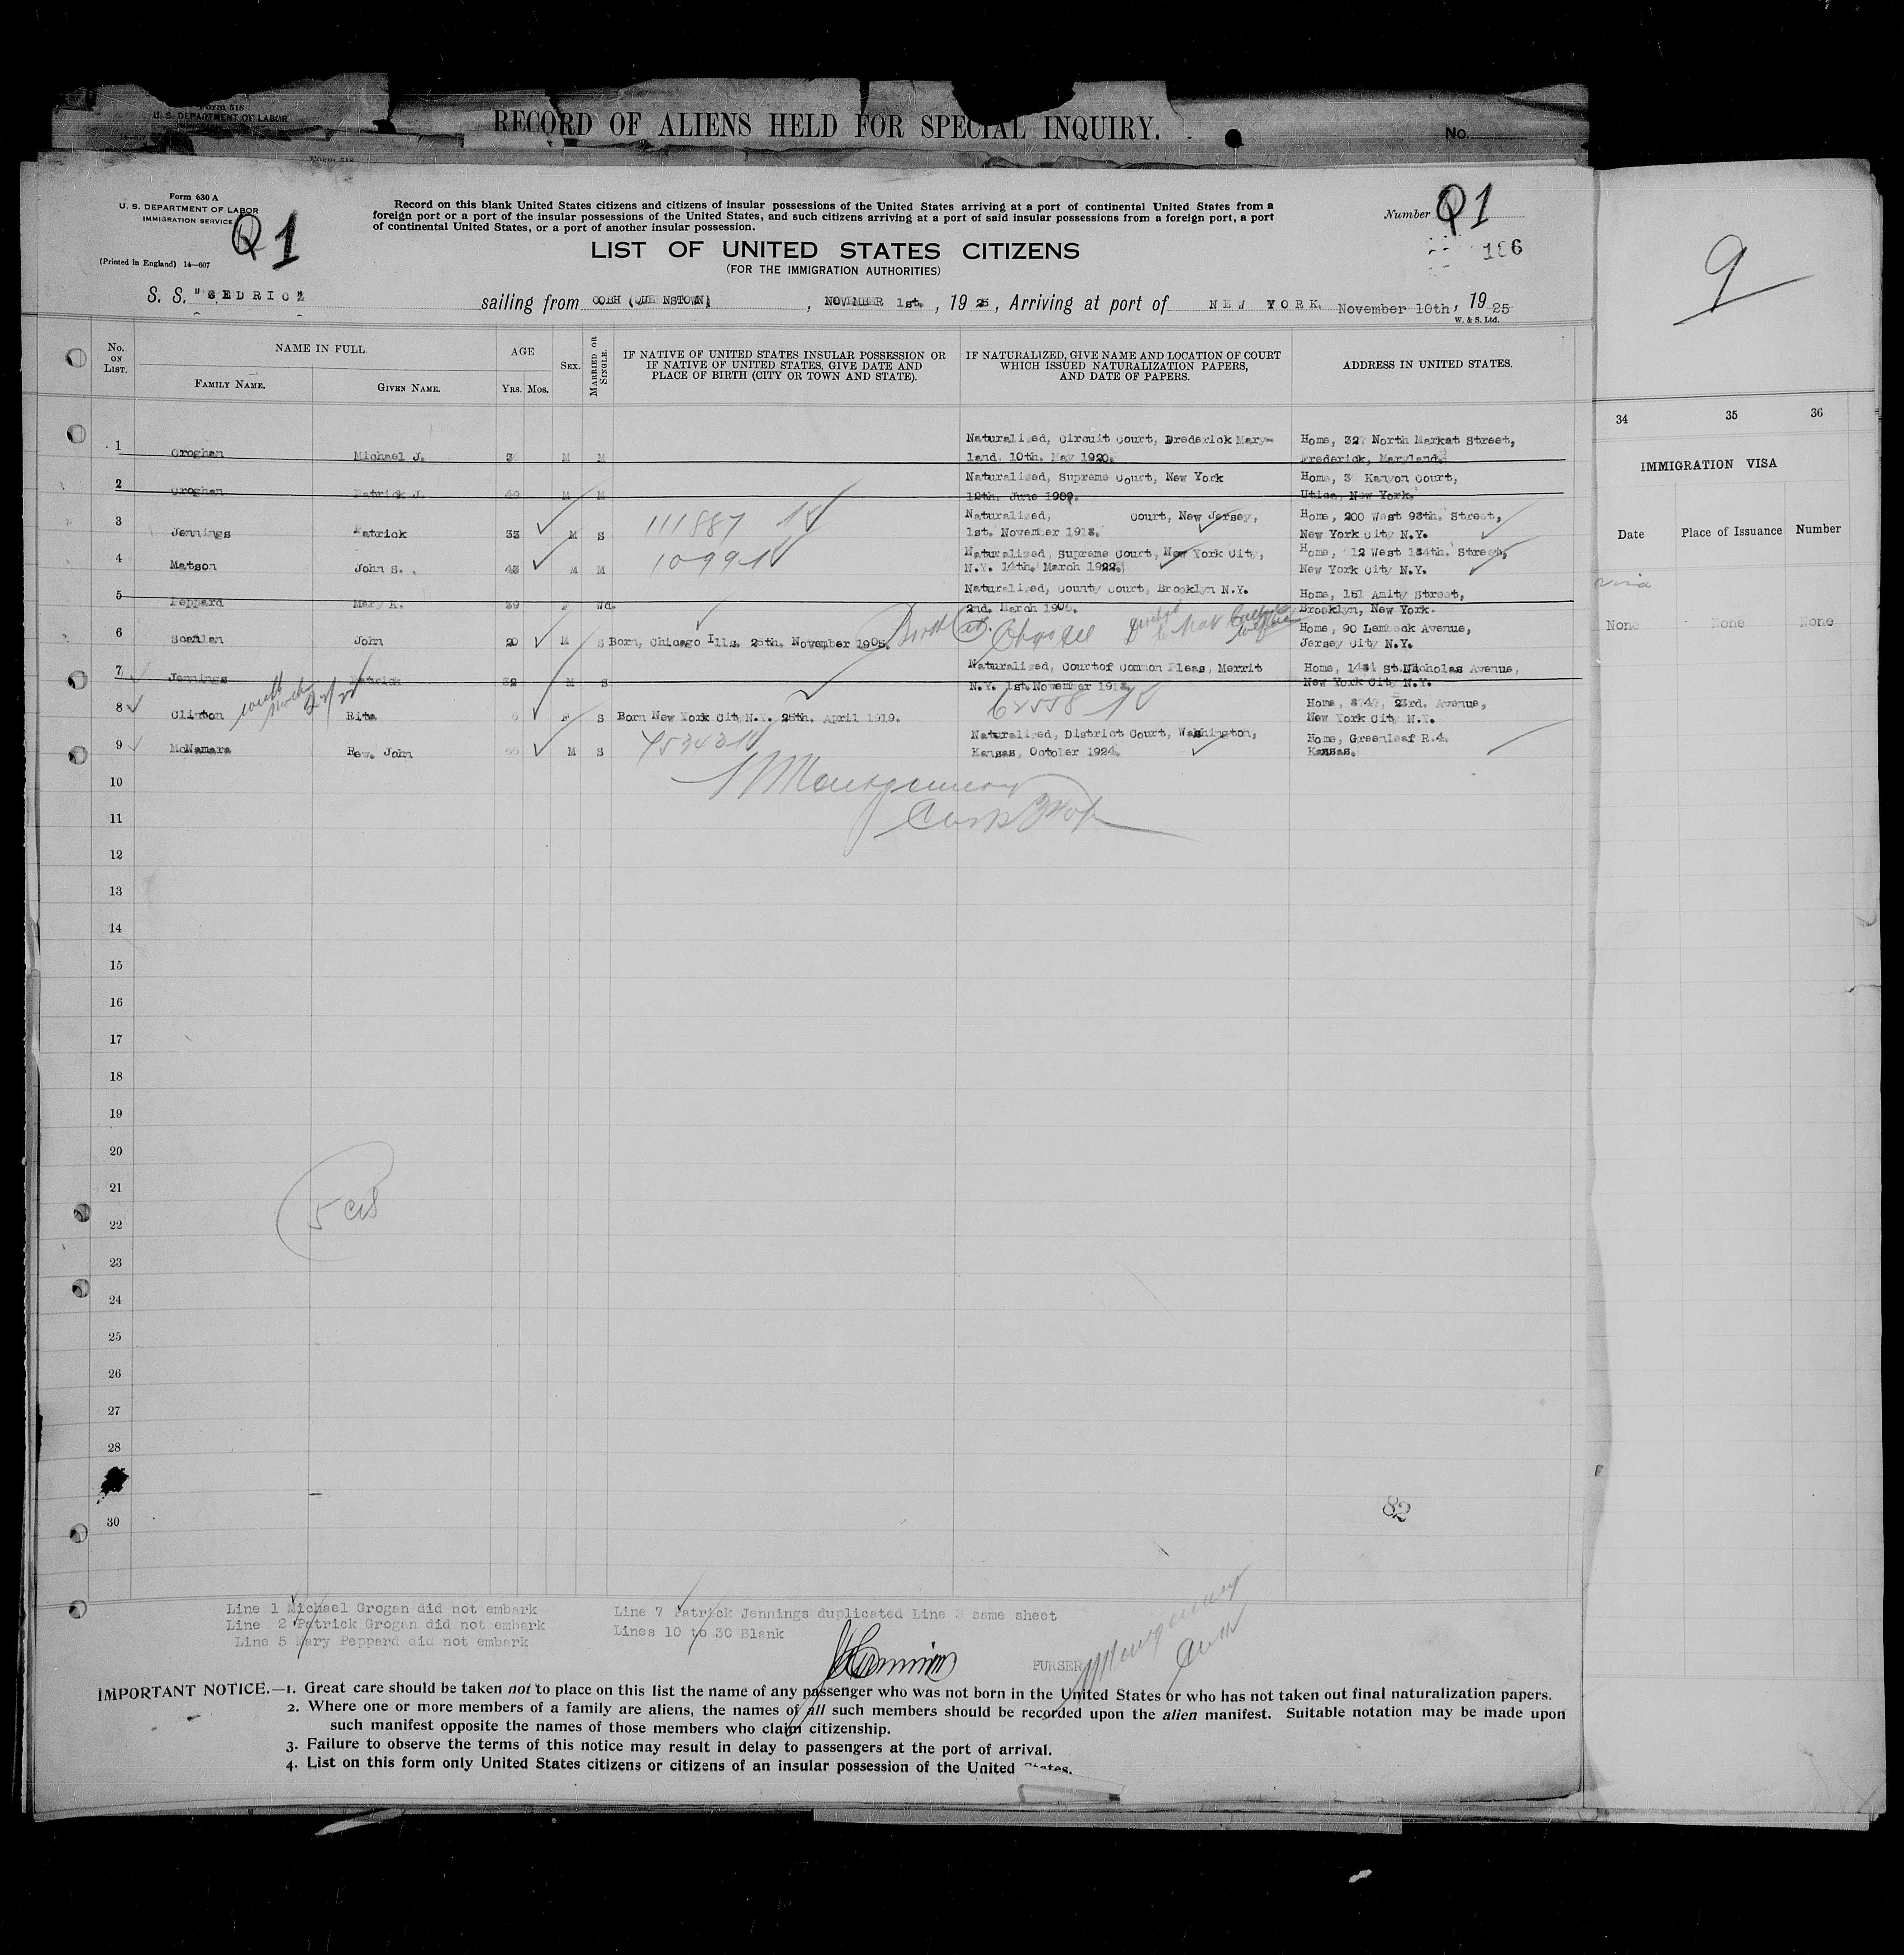 Form 518
U. S. DEPARTMENT OF LABOR
RECORD OF ALIENS HELD FOR SPECIAL INQUIRY.
No.
Form 630 A
U. S. DEPARTMENT OF LABOR
IMMIGRATION SERVICE
Q1
(Printed in England) 14—607
Record on this blank United States citizens and citizens of insular possessions of the United States arriving at a port of continental United States from a
foreign port or a port of the insular possessions of the United States, and such citizens arriving at a port of said insular possessions from a foreign port, a port
of continental United States, or a port of another insular possession.
Number Q1
186
LIST OF UNITED STATES CITIZENS
(FOR THE IMMIGRATION AUTHORITIES)
9
S. S. "CEDRIC" sailing from COBH (QUEENSTOWN), NOVEMBER 1st., 1925, Arriving at port of NEW YORK. November 10th, 1925
W. & S. Ltd.
No. ON LIST.
NAME IN FULL.
FAMILY NAME.
GIVEN NAME.
AGE
YRS. MOS.
SEX.
MARRIED OR SINGLE.
IF NATIVE OF UNITED STATES INSULAR POSSESSION OR
IF NATIVE OF UNITED STATES, GIVE DATE AND
PLACE OF BIRTH (CITY OR TOWN AND STATE).
IF NATURALIZED, GIVE NAME AND LOCATION OF COURT
WHICH ISSUED NATURALIZATION PAPERS,
AND DATE OF PAPERS.
ADDRESS IN UNITED STATES.
34 35 36
IMMIGRATION VISA
Date Place of Issuance Number
visa
None None None
1 Groghan Michael J. M M Naturalized, Circuit Court, Frederick Mary-
land, 10th. May 1920. Home, 327 North Market Street,
Frederick, Maryland.
2 Groghan Patrick J. 49 M M Naturalized, Supreme Court, New York
12th. June 1909. Home, 3 Kanyon Court,
Utica, New York.
3 Jennings Patrick 33 M S 111887 Naturalized, Court, New Jersey,
1st. November 1918. Home, 200 West 98th. Street,
New York City N.Y.
4 Matson John S. 43 M M 10991 Naturalized, Supreme Court, New York City,
N.Y. 14th. March 1922. Home, 612 West 184th. Street,
New York City N.Y.
5 Peppard Mary K. 39 F Wd. Naturalized, County Court, Brooklyn N.Y.
2nd. March 1906. Home, 151 Amity Street,
Brooklyn, New York.
6 Scanlan John 20 M S Born, Chicago Ills. 25th. November 1905. Birth Home, 90 Lembeck Avenue,
Jersey City N.Y.
7 Jennings Patrick 32 M S Naturalized, Court of Common Pleas, Merrit
N.Y. 1st. November 1918. St. Nicholas Avenue,
New York City N.Y.
8 Clinton with Rita 6 F S Born New York City N.Y. 25th. April 1919. 62558 Home, 23rd. Avenue,
New York City N.Y.
9 McNamara Rev. John M S 753431 Naturalized, District Court, Washington,
Kansas, October 1924. Home, Greenleaf R.4.
Kansas.
Montgomery
10
11
12
13
14
15
16
17
18
19
20
21
22
23
24
25
26
27
28
30
5 cit
82
Line 1 Michael Grogan did not embark
Line 2 Patrick Grogan did not embark
Line 5 Mary Peppard did not embark
Line 7 Patrick Jennings duplicated Line 3 same sheet
Lines 10 to 30 Blank
PURSER
IMPORTANT NOTICE.—1. Great care should be taken not to place on this list the name of any passenger who was not born in the United States or who has not taken out final naturalization papers.
2. Where one or more members of a family are aliens, the names of all such members should be recorded upon the alien manifest. Suitable notation may be made upon
such manifest opposite the names of those members who claim citizenship.
3. Failure to observe the terms of this notice may result in delay to passengers at the port of arrival.
4. List on this form only United States citizens or citizens of an insular possession of the United States.